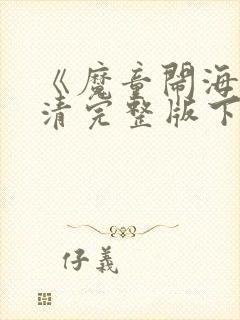 《魔童鬧海
清完整版下
仔義